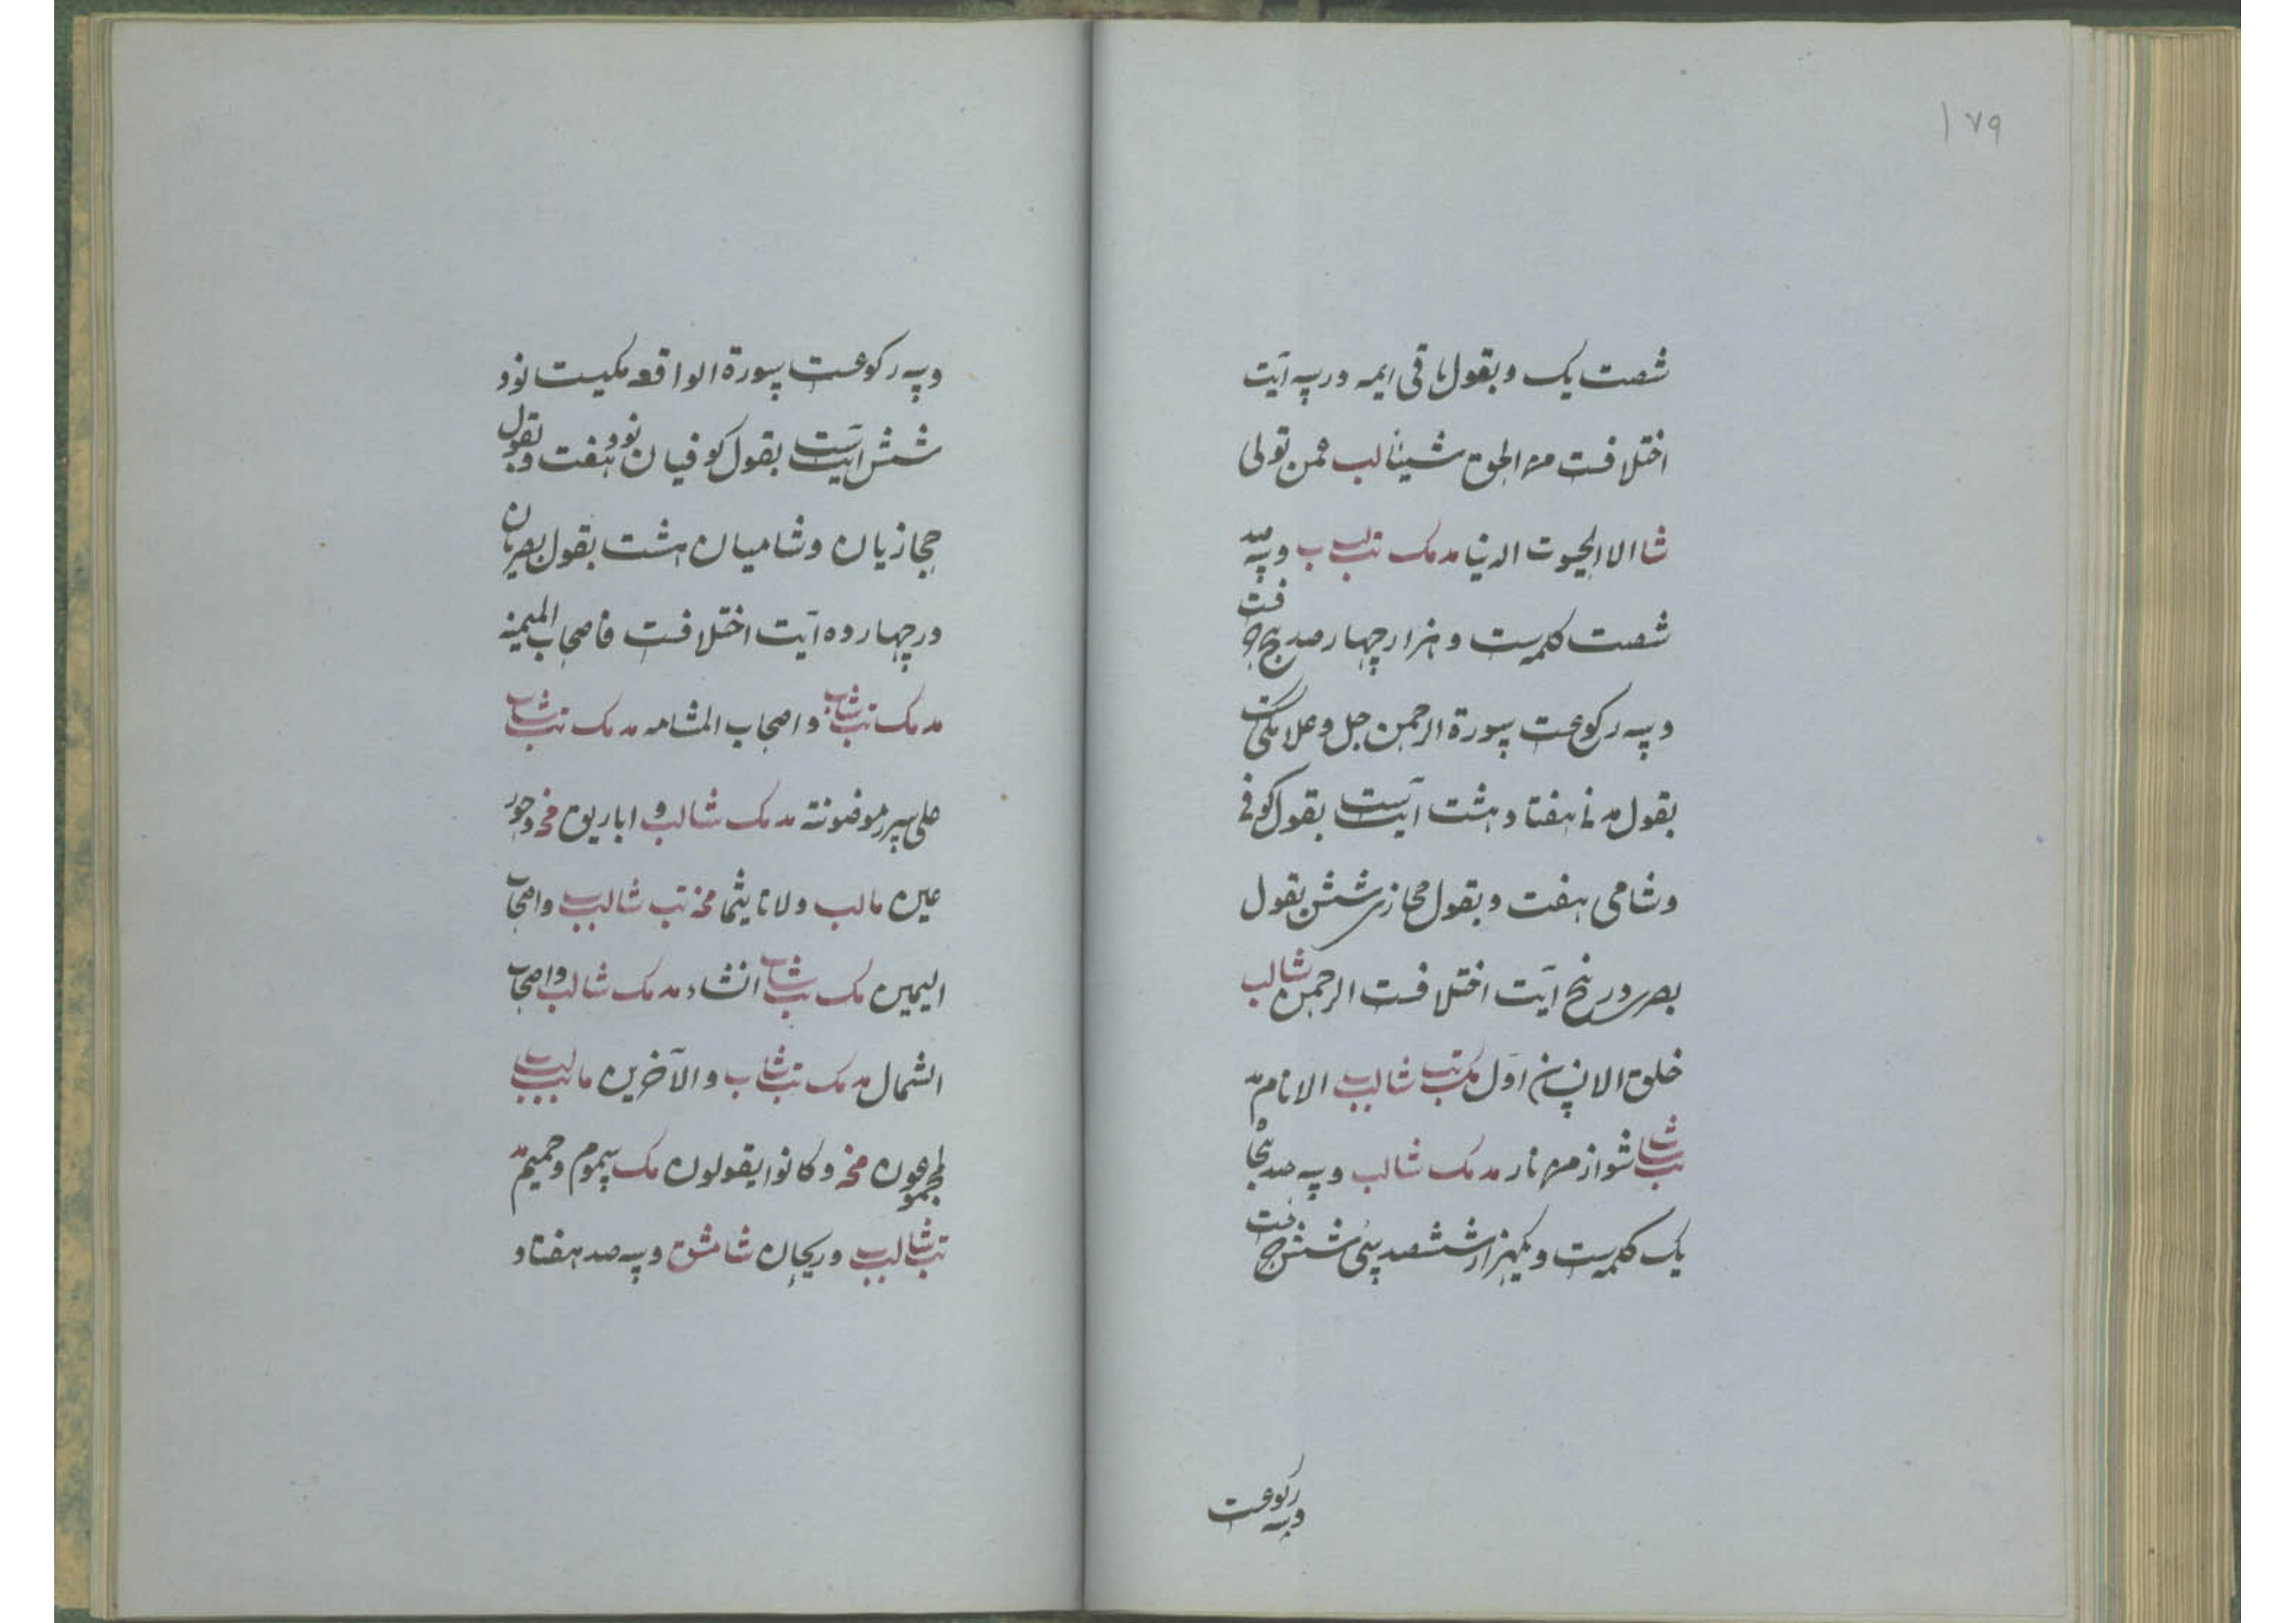 ۱۷۹
شصت یک و بقول باقی ایمه در سه آیت
اختلافست من الحق شیئا لب عمن تولی
شا الا الحیوت الدنیا مد مک تب لب ب و سه صد
شصت کلمه‌ست و هزار چهار صد پنج حرفست
و سه رکوعست سورة الرحمن جل و علا مکیت
بقول مدنی هفتاد هشت آیتست بقول کوفی
و شامی هفت و بقول حجازی شش بقول
بصری در پنج آیت اختلافست الرحمن شا لب
خلق الانسان اول مک تب شا لب ب الانام مد
تب شا ب شواظ من نار مد مک شا لب و سه صد پنجا
یک کلمه‌ست و یکهزار ششصد سی شش حرفست
و سه رکوعست
و سه رکوعست سورة الواقعه مکیست نود
شش آیتست بقول کوفیان نود و هفت و بقول
حجازیان و شامیان هشت بقول بصریان
در چهارده آیت اختلافست فاصحاب المیمنه
مد مک تب شا ب و اصحاب المشامه مد مک تب شا ب
علی سرر موضونة مد مک شا لب و اباریق مخ و حور
عین ما لب و لا تاثیما مخ تب شا لب ب و اصحاب
الیمین مک تب شا ب انشاء مد مک شا لب و اصحاب
الشمال مد مک تب شا ب و الآخرین ما لب ب
لمجموعون مخ و کانوا یقولون مک سموم و حمیم مد
تب شا لب ب و ریحان شا مشق و سه صد هفتاد